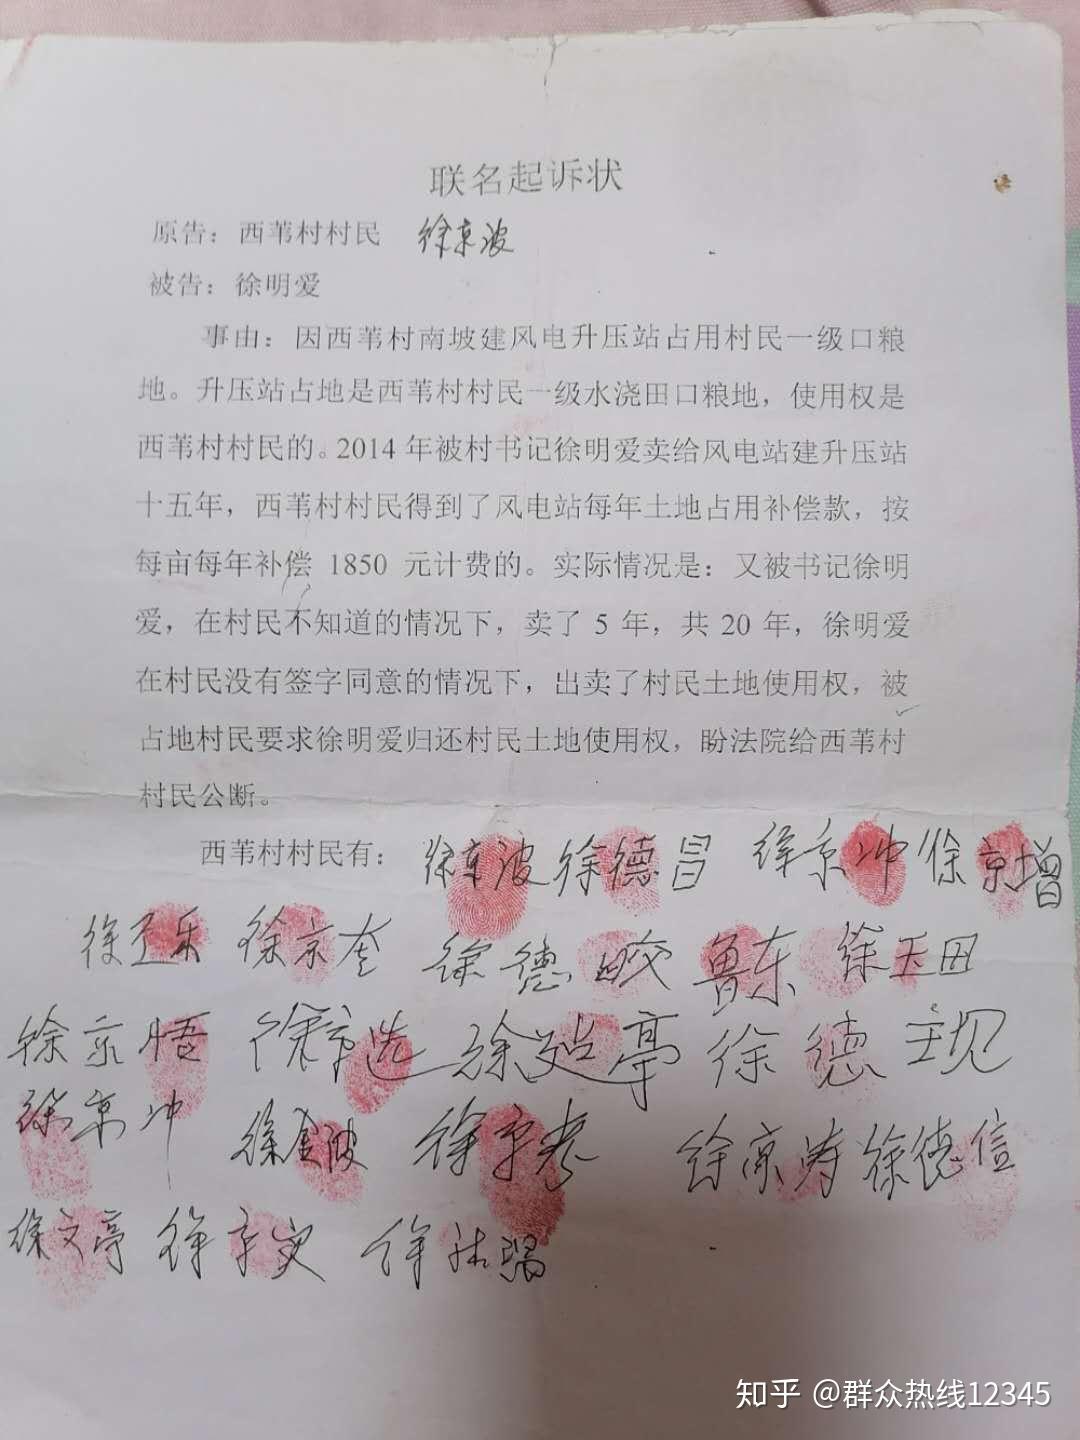 联名起诉状
原告：西苇村村民 徐京波
被告：徐明爱
事由：因西苇村南坡建风电升压站占用村民一级口粮
地。升压站占地是西苇村村民一级水浇田口粮地，使用权是
西苇村村民的。2014年被村书记徐明爱卖给风电站建升压站
十五年，西苇村村民得到了风电站每年土地占用补偿款，按
每亩每年补偿 1850 元计费的。实际情况是：又被书记徐明
爱，在村民不知道的情况下，卖了5年，共20年，徐明爱
在村民没有签字同意的情况下，出卖了村民土地使用权，被
占地村民要求徐明爱归还村民土地使用权，盼法院给西苇村
村民公断。
西苇村村民有： 徐京波 徐德昌 徐京冲 徐京增
徐京奎 徐德皎 鲁东 徐玉田
徐京悟 徐京选 徐德现
徐京冲 徐金波 徐京寿 徐德信
徐文亭
知乎 @群众热线12345